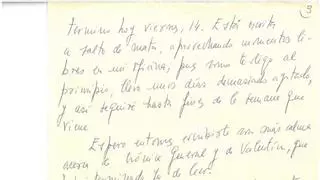 3
termino hoy viernes, 14. Está escrita
a salto de mata, aprovechando momentos li-
bres en mi oficina, pues como te digo al
principio, llevo unos días demasiado agitado,
y así seguiré hasta fines de la semana que
viene.
Espero entonces escribirte con más calma
acerca de Crónica General y de Valentín, que
terminando de leer.